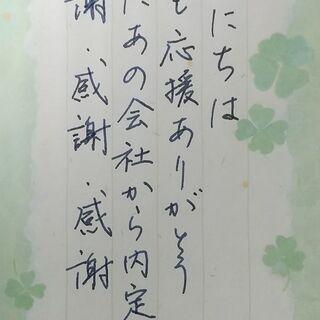 にちは
応援ありがとう
あの会社から内定
謝、感謝、感謝